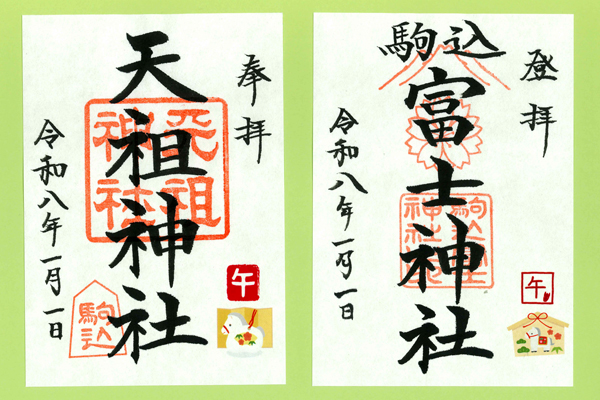 奉拝
天祖神社
天祖神社
令和八年一月一日
駒込
午
登拝
駒込
富士神社
令和八年一月一日
午